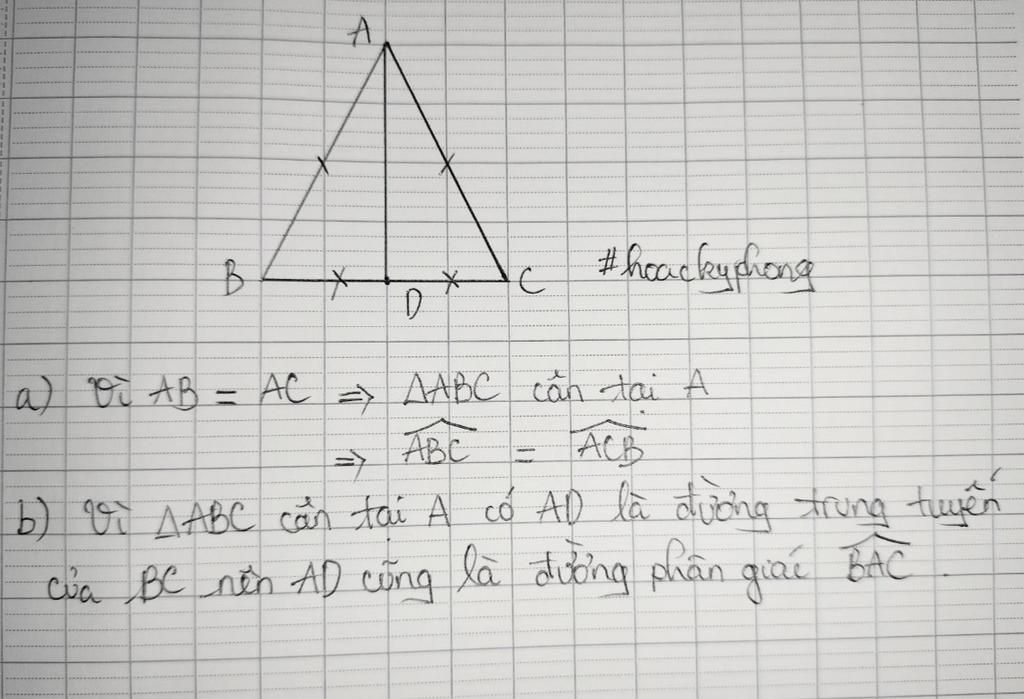 A
B
D
C
#hoackyphong
a) Vì AB = AC ⇒ ΔABC cân tại A
⇒ \widehat{ABC} = \widehat{ACB}
b) Vì ΔABC cân tại A có AD là đường trung tuyến
của BC nên AD cũng là đường phân giác \widehat{BAC}.